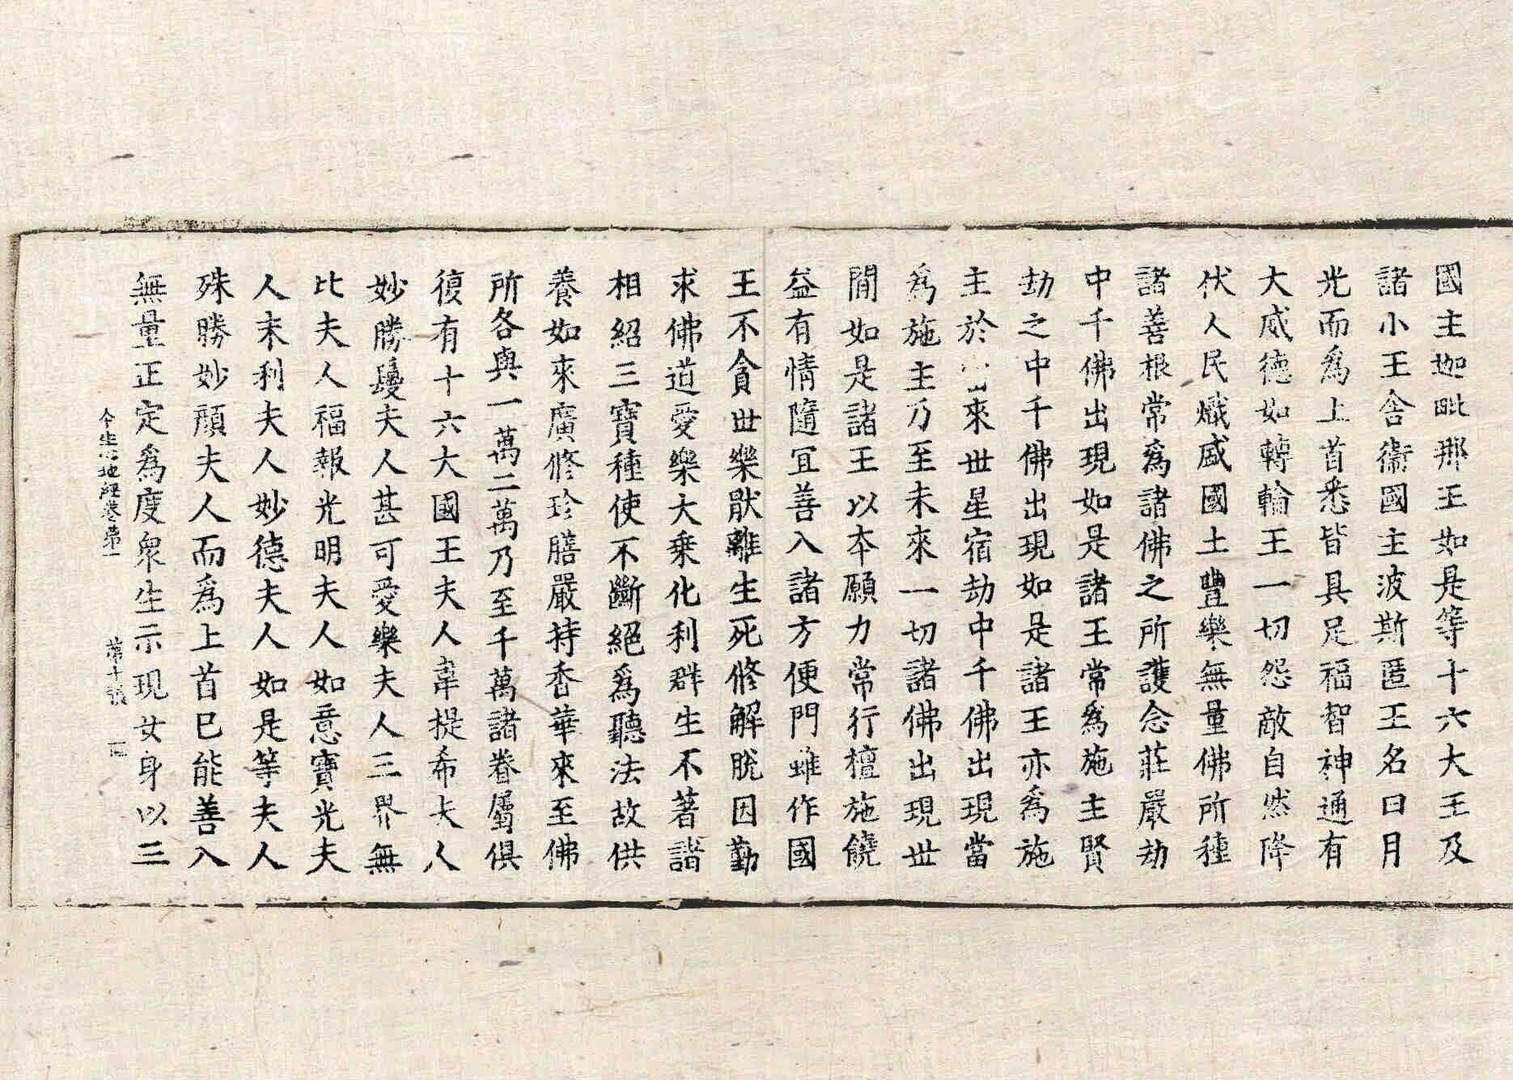 國主迦毗那王如是等十六大王及
諸小王舍衞國主波斯匿王名曰月
光而爲上首悉皆具足福智神通有
大威德如轉輪王一切怨敵自然降
伏人民熾盛國土豐樂無量佛所種
諸善根常爲諸佛之所護念莊嚴劫
中千佛出現如是諸王常爲施主賢
劫之中千佛出現如是諸王亦爲施
主於當來世星宿劫中千佛出現當
爲施主乃至未來一切諸佛出現世
間如是諸王以本願力常行檀施饒
益有情隨宜善入諸方便門雖作國
王不貪世樂猒離生死修解脫因勤
求佛道愛樂大乘化利群生不著諸
相紹三寶種使不斷絕爲聽法故供
養如來廣修珍膳嚴持香華來至佛
所各與一萬二萬乃至千萬諸眷屬俱
復有十六大國王夫人韋提希夫人
妙勝鬘夫人甚可愛樂夫人三界無
比夫人福報光明夫人如意寶光夫
人末利夫人妙德夫人如是等夫人
殊勝妙顏夫人而爲上首已能善入
無量正定爲度衆生示現女身以三
生心地經卷第一 第十張